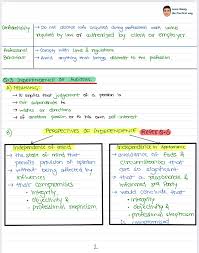 Confidentiality → Do not disclose info acquired during profession work unless
required by law or authorized by client or employer
Professional → Comply with laws & regulations
Behaviour → Avoid anything that brings discredit to the profession
5.3 INDEPENDENCE OF AUDITORS
A) MEANING
→ It implies that judgement of a person is
→ not subordinate to
→ wishes or directions
→ of another person or to his own self interest
B) PERSPECTIVES OF INDEPENDENCE
Independence of mind
→ the state of mind that
permits provision of opinion
without being affected by
influences
→ that compromises
→ integrity
→ objectivity &
→ professional skepticism
Independence in Appearance
→ avoidance of facts &
circumstances that are
so significant
→ that a reasonable &
informed 3rd party
→ would conclude that
→ integrity
→ objectivity &
→ professional skepticism
is compromised